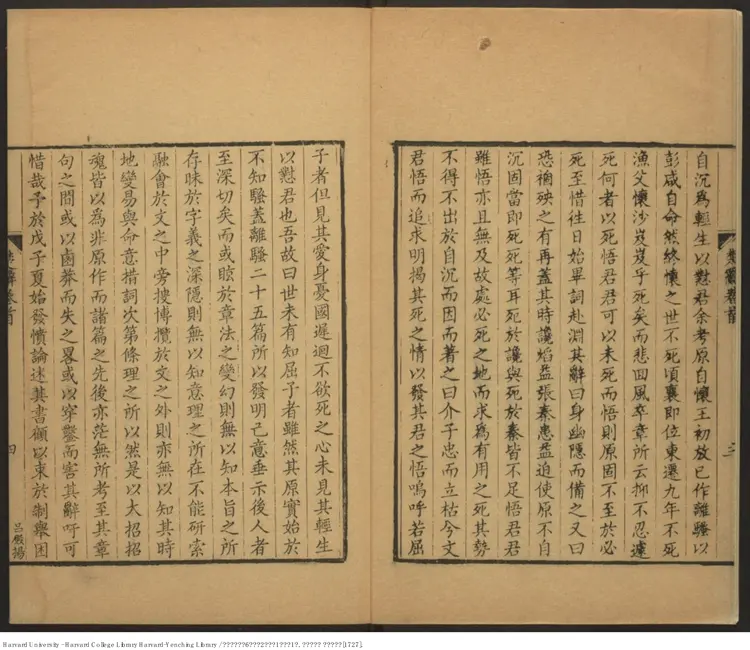 自沉為輕生以懟君余考原自懷王初放已作離騷以
彭咸自命然終懷之世不死頃襄即位東遷九年不死
漁父懷沙岌岌乎死矣而悲回風卒章所云抑不忍遽
死何者以死悟君君可以未死而悟則原固不至於必
死至惜往日始畢詞赴淵其辭曰身幽隱而備之又曰
恐禍殃之有再蓋其時讒焰益張秦患益迫使原不自
沉固當即死死等耳死於讒與死於秦皆不足悟君君
雖悟亦且無及故處必死之地而求為有用之死其勢
不得不出於自沉而因而著之曰介子忠而立枯今文
君悟而追求明揭其死之情以發其君之悟嗚呼若屈
三
子者但見其愛身憂國遲迴不欲死之心未見其輕生
以懟君也吾故曰世未有知屈子者雖然其原實始於
不知騷蓋離騷二十五篇所以發明己意垂示後人者
至深切矣而或眩於章法之變幻則無以知本旨之所
存昧於字義之深隱則無以知意理之所在不能研索
融會於文之中旁搜博攬於文之外則亦無以知其時
地變易與命意措詞次第條理之所以然是以大招招
魂皆以為非原作而諸篇之先後亦茫無所考至其章
句之間或以鹵莽而失之畧或以穿鑿而害其辭吁可
惜哉予於戊子夏始發憤論述其書顧以束於制舉困
楚辭卷首
四
呂殿揚
Harvard University - Harvard College Library Harvard-Yenching Library / ??????6???2???1???1?, ????? ?????[1727].